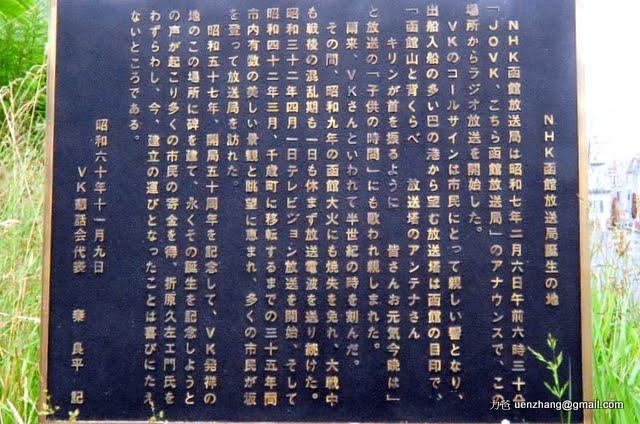 NHK函館放送局誕生の地
NHK函館放送局は昭和七年二月六日午前六時三十分、
「JOVK、こちら函館放送局」のアナウンスで、この
場所からラジオ放送を開始した。
VKのコールサインは市民にとって親しい響となり、
出船入船の多い巴の港から望む放送塔は函館の目印で、
「函館山と背くらべ　放送塔のアンテナさん
キリンが首を振るように　皆さんお元気今晩は」
と放送の「子供の時間」にも歌われ親しまれた。
爾来、VKさんといわれて半世紀の時を刻んだ。
その間、昭和九年の函館大火にも焼失を免れ、大戦中
も戦後の混乱期も一日も休まず放送電波を送り続けた。
昭和三十二年四月一日テレビジョン放送を開始、そして
昭和四十二年三月、千歳町に移転するまでの三十五年間
市内有数の美しい景観と眺望に恵まれ、多くの市民が坂
を登って放送局を訪れた。
昭和五十七年、開局五十周年を記念して、VK発祥の
地のこの場所に碑を建て、永くその誕生を記念しようと
の声が起こり多くの市民の寄金を得、折原久左エ門氏を
わずらわし、今、建立の運びとなったことは喜びにたえ
ないところである。
昭和六十年十一月九日
VK懇話会代表　秦　良平　記
力爸 uenzhang@gmail.com